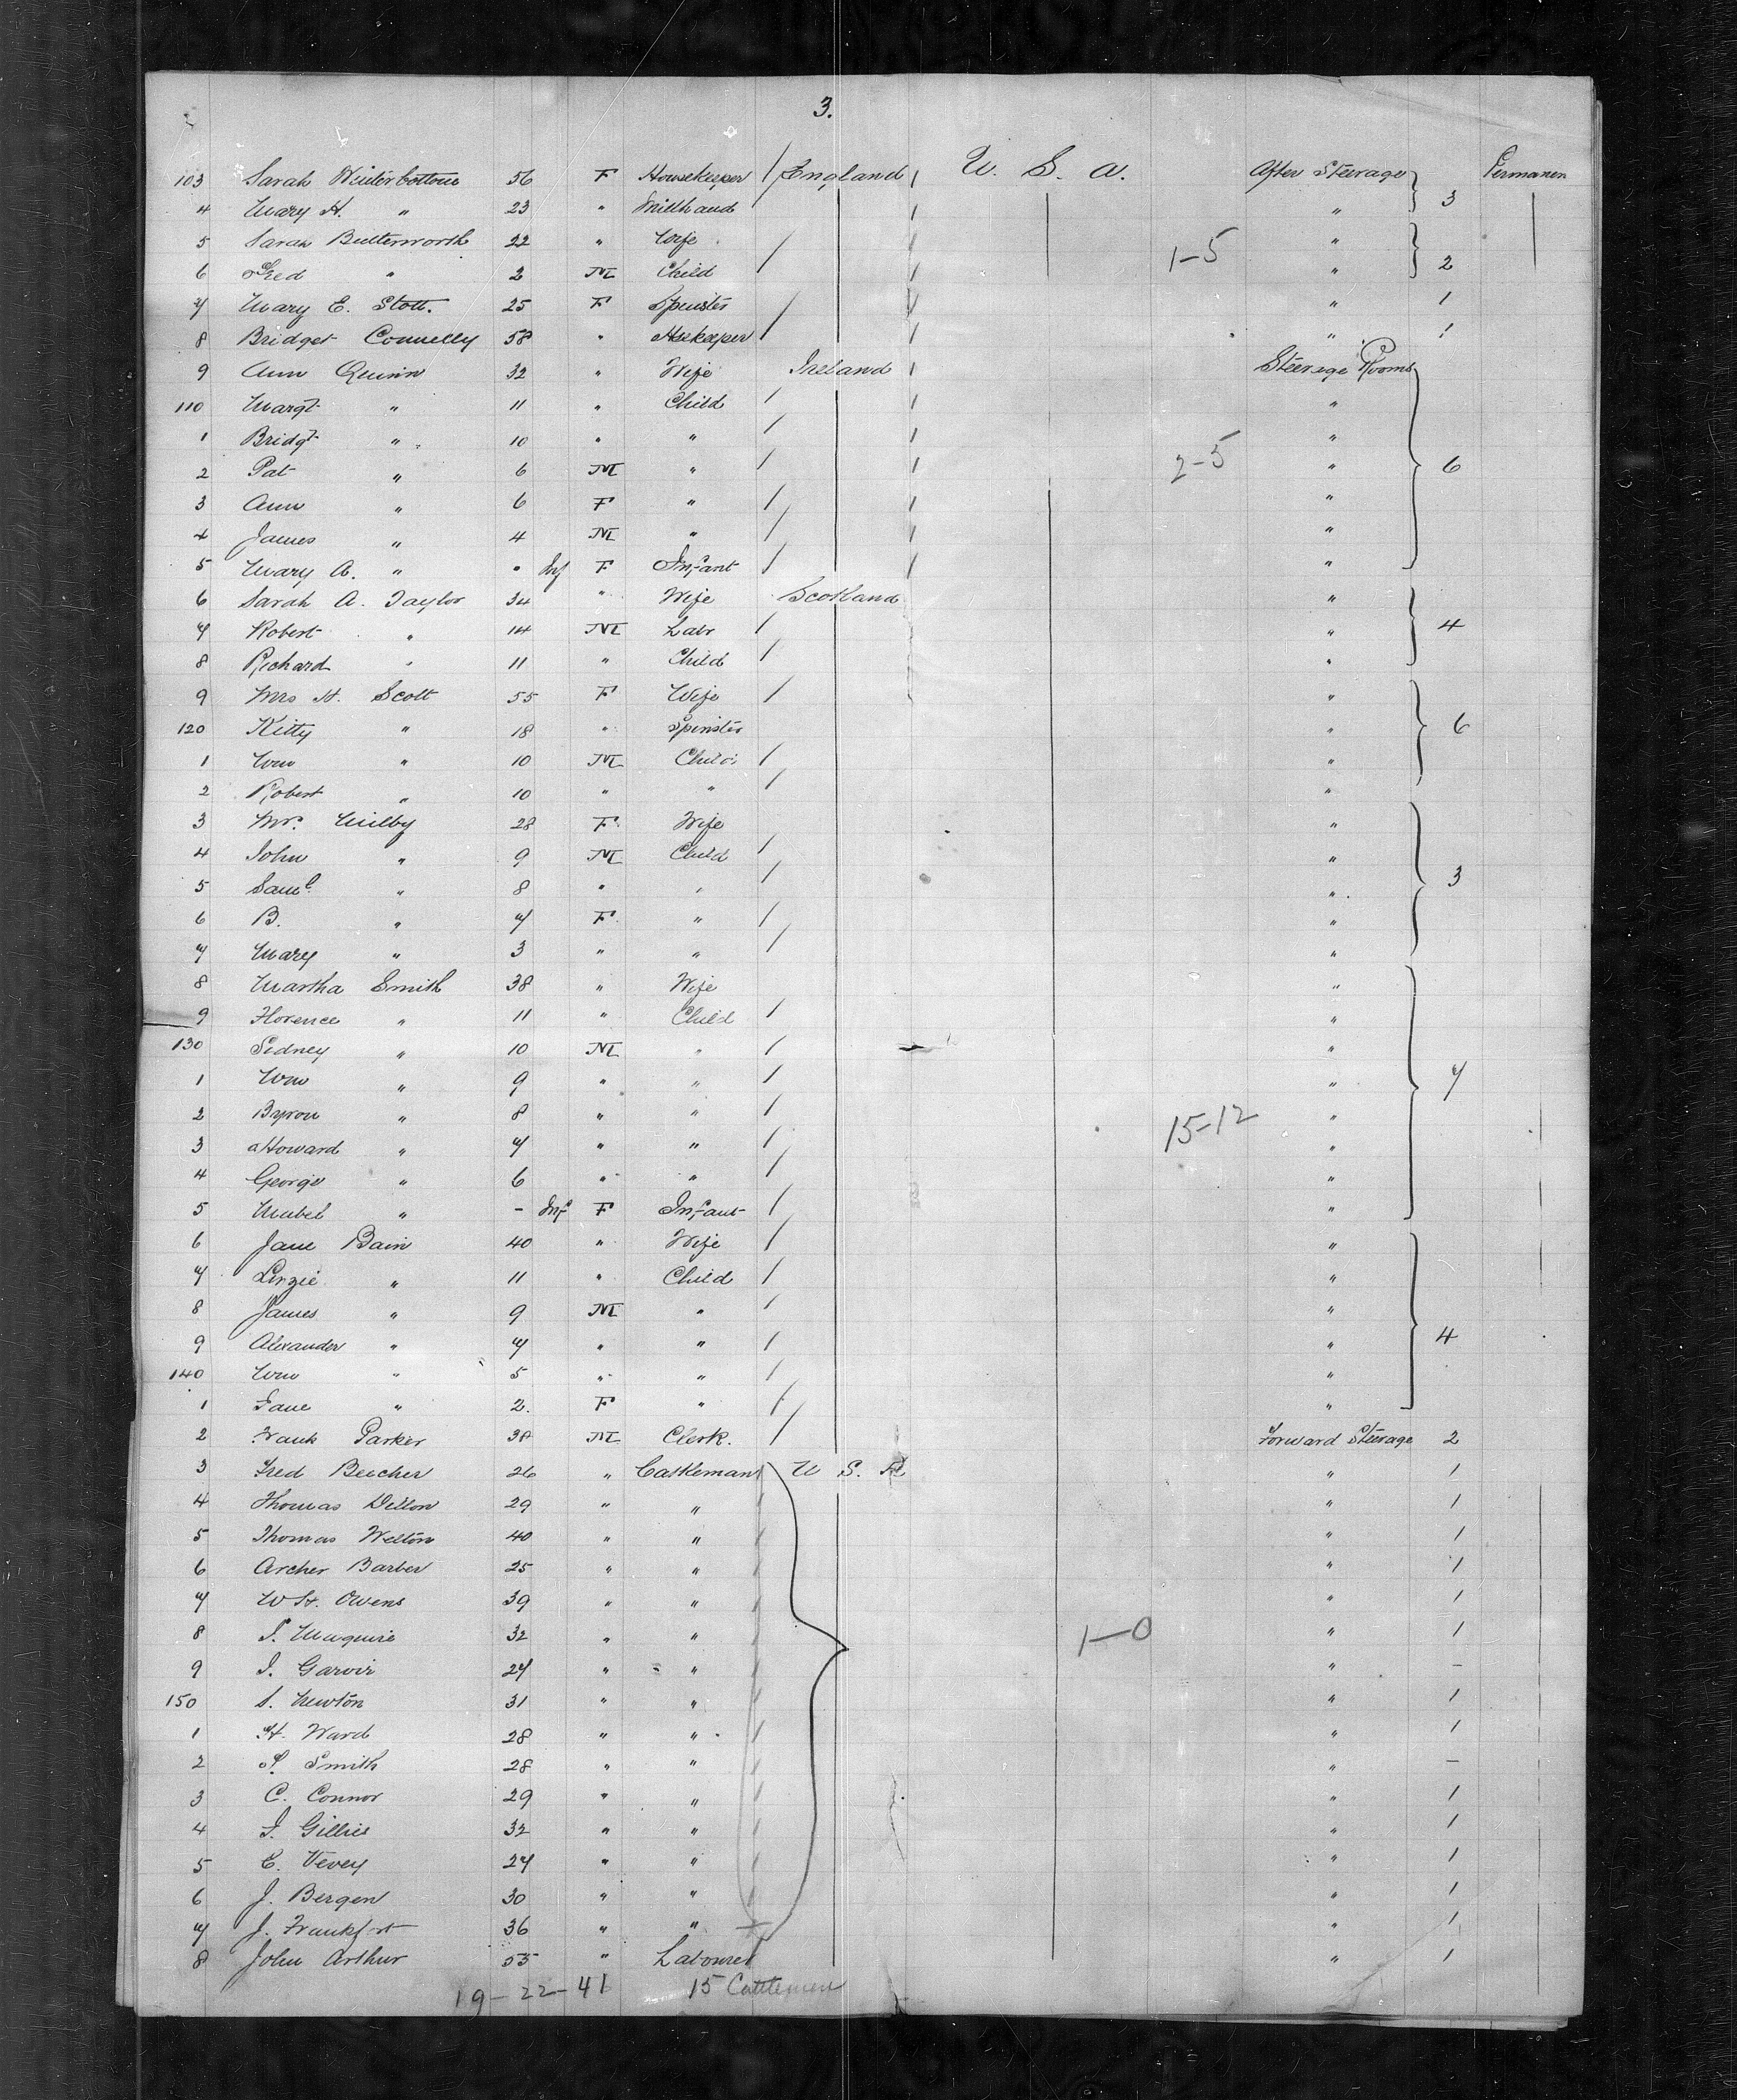 3.
103 Sarah Winterbottom 56 F Housekeeper England U. S. A. After Steerage 3 Permanen
4 Mary H. " 23 " Millhand "
5 Sarah Butterworth 22 " Wife "
6 Fred " 2 M Child 1-5 " 2
7 Mary E. Stott. 25 F Spinster " 1
8 Bridget Connelly 58 " Hsekeeper " 1
9 Ann Quinn 32 " Wife Ireland Steerage Rooms
110 Margt " 11 " Child "
1 Bridgt " 10 " " "
2 Pat " 6 M " 2-5 " 6
3 Ann " 6 F " "
4 James " 4 M " "
5 Mary A. " " Inf F Infant "
6 Sarah A. Taylor 34 " Wife Scotland "
7 Robert " 14 M Labr " 4
8 Richard " 11 " Child "
9 Mrs H. Scott 55 F Wife "
120 Kitty " 18 " Spinster " 6
1 Wm " 10 M Child "
2 Robert " 10 " " "
3 Mrs. Milby 28 F Wife "
4 John " 9 M Child "
5 Saml " 8 " " " 3
6 B. " 7 F " "
7 Mary " 3 " " "
8 Martha Smith 38 " Wife "
9 Florence " 11 " Child "
130 Sidney " 10 M " "
1 Wm " 9 " " " 7
2 Byron " 8 " " 15-12 "
3 Howard " 7 " " "
4 George " 6 " " "
5 Mabel " - Inf F Infant "
6 Jane Bain 40 " Wife "
7 Lizzie " 11 " Child "
8 James " 9 M " "
9 Alexander " 7 " " " 4
140 Wm " 5 " " "
1 Jane " 2. F " "
2 Frank Parker 38 M Clerk. Forward Steerage 2
3 Fred Beecher 26 " Cattleman U S. A " 1
4 Thomas Dillon 29 " " " 1
5 Thomas Welton 40 " " " 1
6 Archer Barber 25 " " " 1
7 W H. Owens 39 " " " 1
8 S. Maguire 32 " " 1-0 " 1
9 J. Garvir 27 " " " -
150 S. Newton 31 " " " 1
1 H. Ward 28 " " " 1
2 S. Smith 28 " " " -
3 C. Connor 29 " " " 1
4 J. Gillies 32 " " " 1
5 C. Vevey 27 " " " 1
6 J. Bergen 30 " " " 1
7 J. Frankfort 36 " " " 1
8 John Arthur 55 " Labourer " 1
19-22-41 15 Cattlemen